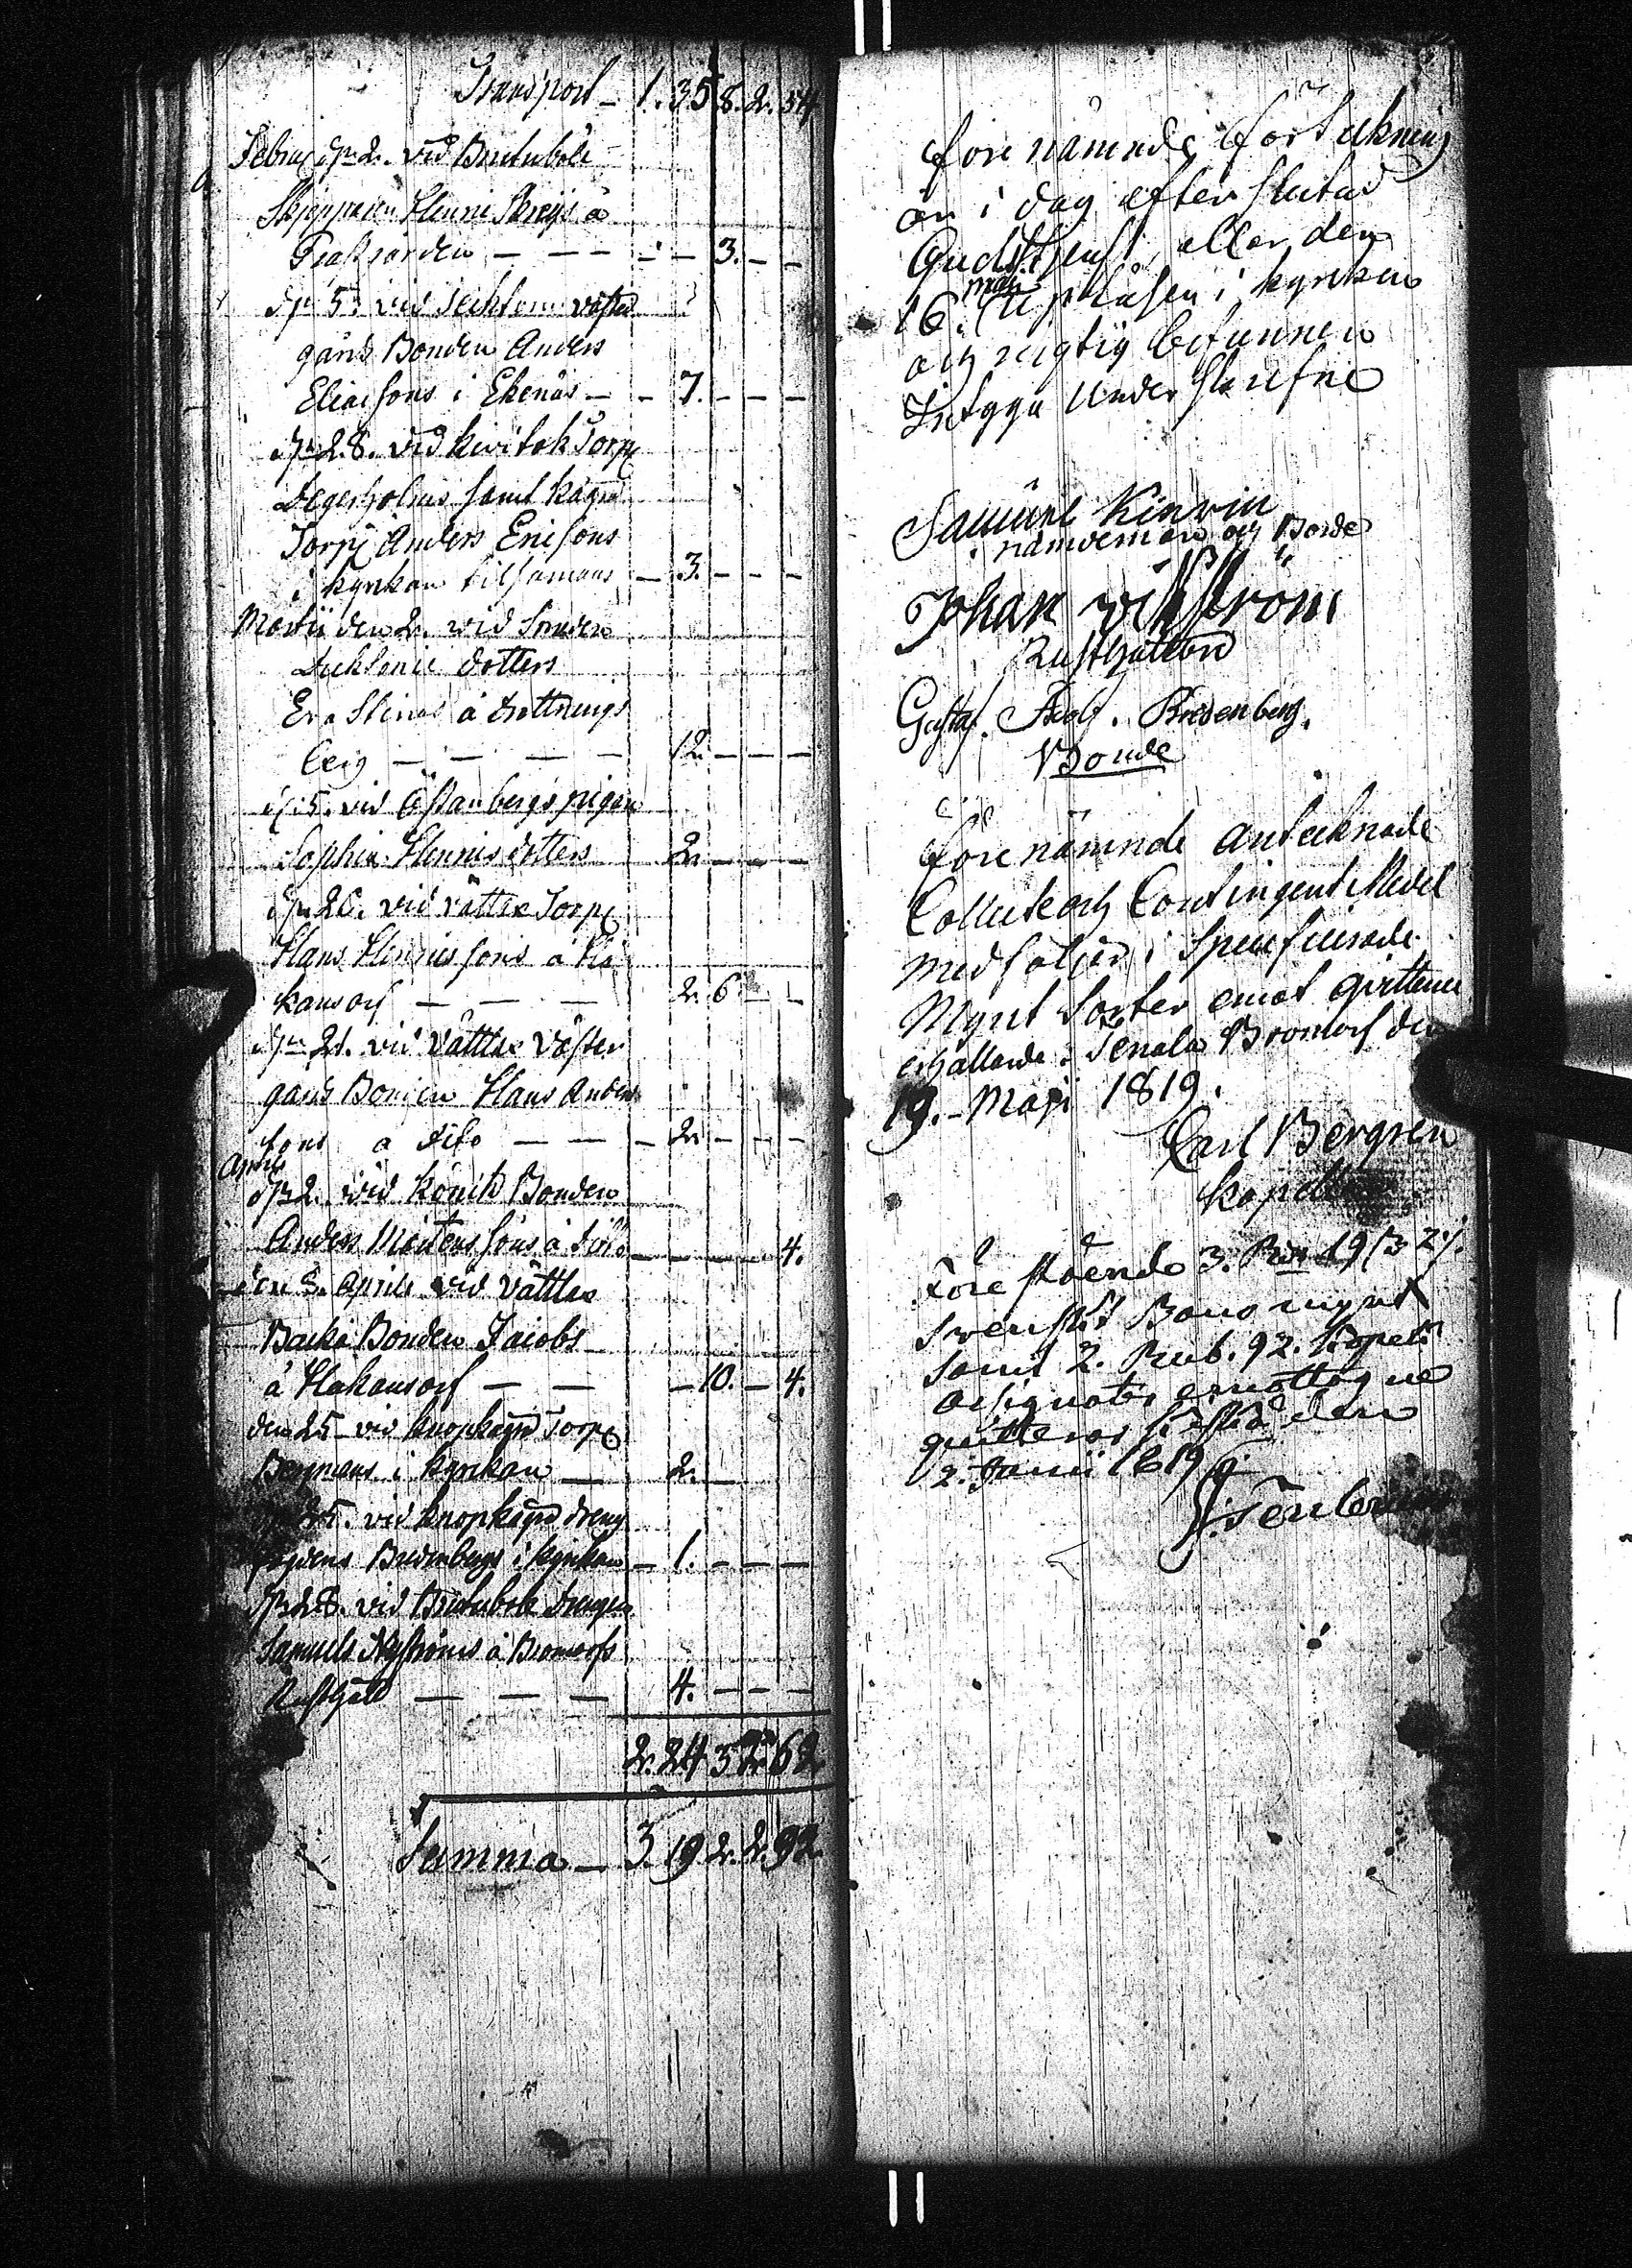 Transport – 1. 35 8. 2. 54
Febru dn 2. vid Brutuböle
Skepparen Henric Skreijs å
Trässarden – – – – – 3. – –
dn 5. vid vester
gårds Bonden Anders
Eliaesons i Ekenäs – – 7. – – –
dn 28. vid kivitok Torp
Degerholms samt kagn
Torp Anders Ericsons
i kyrkan tilsamans – 3. – – –
Martii den 2. vid Sonden
dotters
Eva Stinas å drottnings
berg – – – – 12. – – –
d. 5. vid Östanbergs pigan
Sophia Henrics dotters 2. – – –
dn 20. vid vättlax Torp
Hans Henricssons å Hå
kansarf – – – 2. 6. – –
dn 21. vid Vättlax Väster
gårds Bonden Hans Anders
sons å dito – – – 2. – – –
April
dn 2. vid Bonden
Anders Mårtens sons å dito – – – – 4.
den 3. Aprils vid Vättlax
Backa Bonden Jacobs
å Hakansarf – – – 10. – 4.
den 25 vid knopkägra Torp
Bergmans i kyrkan – 2. –
dn 25. vid knopkägra dreng
Bredenbergs i kyrkan – 1. – – –
dn 28. vid Brutubole Drengen
Samuels Nyströms å Bromarfs
Rusthåll – – – 4. – – –
2. 24 5 2. 62.
Summa – 3. 19 2. 2. 92.
Förenämnde förtekning
är i dag efter slutad
Gudstjenst, eller den
16. Maji upläsen i kyrkan
och rigtig befunnen
Intyga Underskrefne
Samuel Kinrin
nämdeman och Bonde
Johan Wikström
Rusthållare
Gustaf. Adolf. Bredenberg.
Bonde
Förenämnde antecknade
Collect och Contingent Medel
medföljer i Specificerade
Mynt Sorter emot qvittence
erhållande. Tenala Bromarf den
19. Maji 1819.
Carl Bergren
kapellan
Förestående 3. Rdr 19 ß 2 rf.
Svenskt Banco mynt
samt 2. Rub. 92. kopek
assignater emottagne
qvitteras den
2. Junii 1819